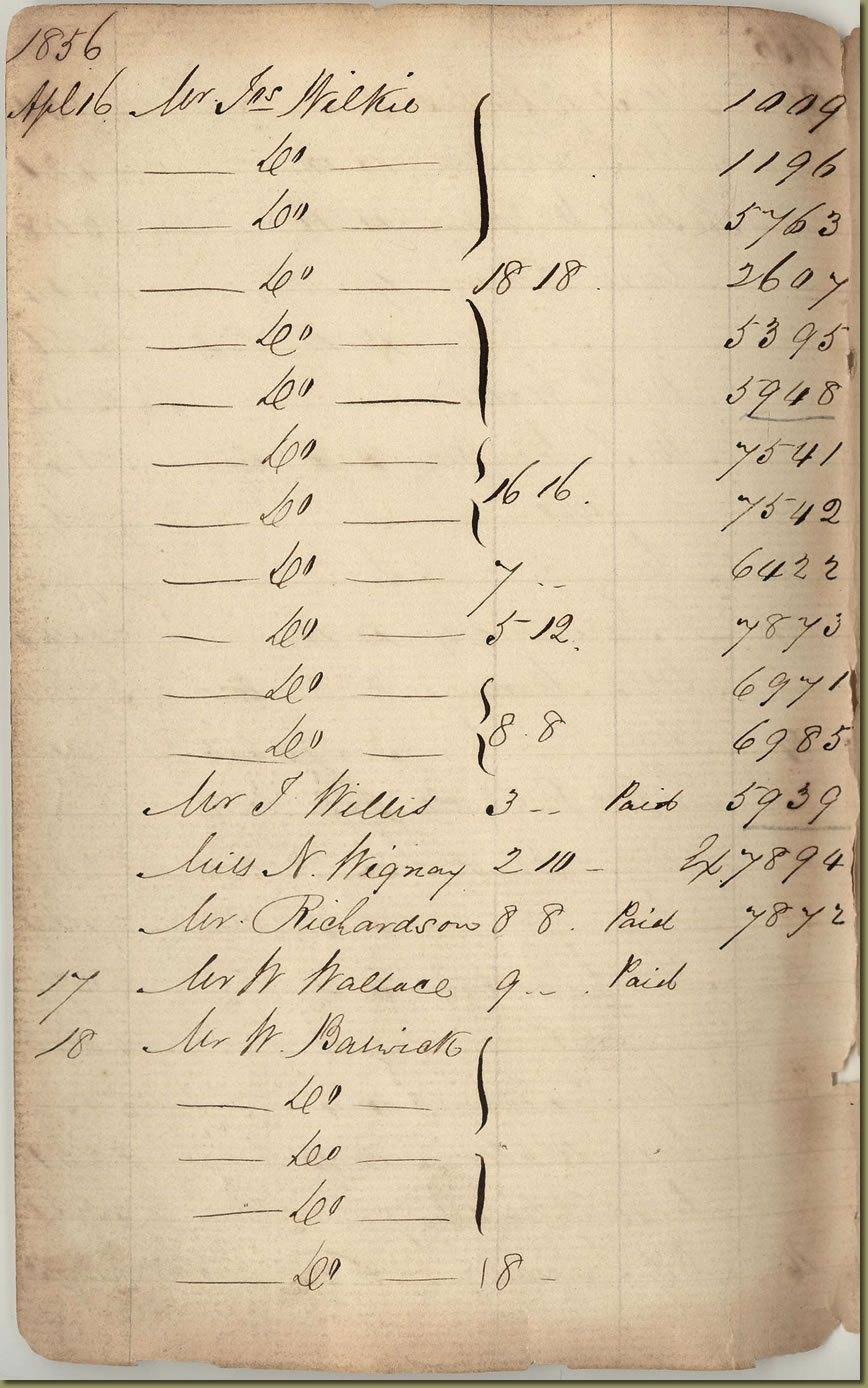 1856
Apl 16 Mr Jas Wilkie 1009
— Do — 1196
— Do — 5763
— Do — 18 18 . 2607
— Do — 5395
— Do — 5948
— Do — 7541
— Do — 16 16 . 7542
— Do — 7 - - 6422
— Do — 5 12 . 7873
— Do — 6971
— Do — 8 . 8 6985
Mr J Willis 3 - - Paid 5939
Miss N. Wignay 2 10 - Ex 7894
Mr. Richardson 8 8 . Paid 7872
17 Mr W Wallace 9 - - . Paid
18 Mr W. Barwick
— Do —
— Do —
— Do —
— Do — 18 -